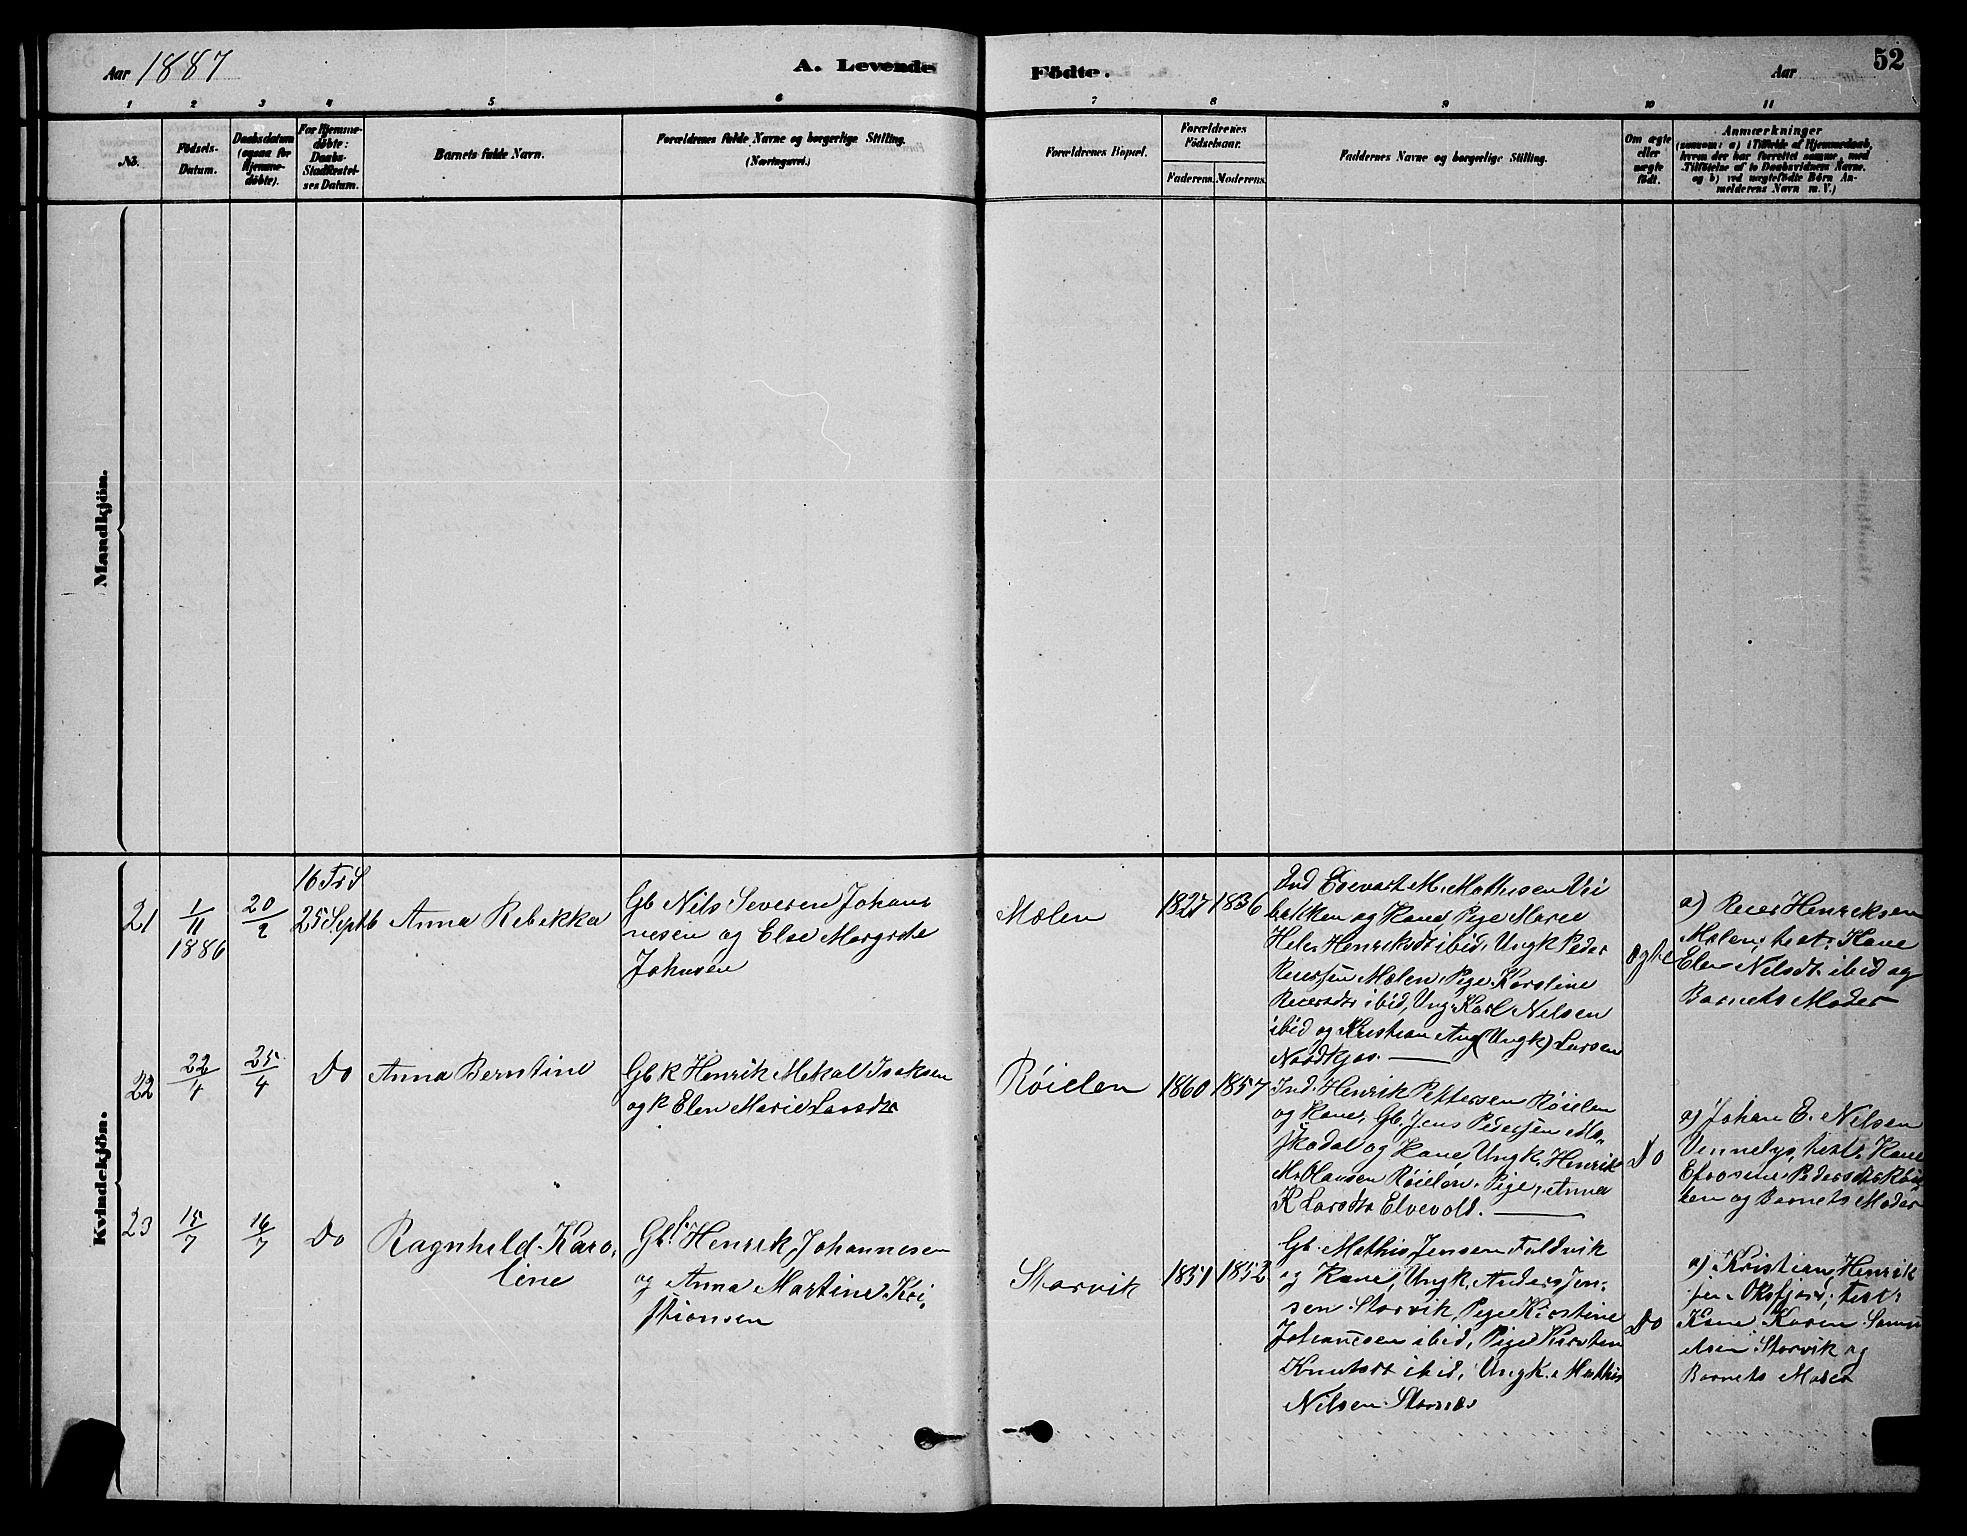 Aar 1887
A. Levende
Födte.
Aar
52
1 2 3 4 5 6 7 8 9 10 11
No.
Födsels-
Datum.
Daabsdatum
(ogsaa for
Hjemme-
døbte).
For Hjemme-
døbte:
Daabs-
Stadfæstel-
ses Datum.
Barnets fulde Navn.
Forældrenes fulde Navne og borgerlige Stilling.
(Næringsvei.)
Forældrenes Bopæl.
Forældrenes
Födselsaar.
Faderens. Moderens.
Faddernes Navne og borgerlige Stilling.
Om ægte
eller
uægte
födt.
Anmærkninger
(saasom: a) i Tilfælde af Hjemmedaab,
hvem der har forrettet samme, med
Tilföielse af to Daabsvidners Navne.
og b) ved uægtefödte Börn An-
melderens Navn m. V.)
Mandkjön.
Kvindekjön.
21
1/11
1886
20/2
16 Tr S
25 Septb
Anna Rebekka
Gb Nils Severen Johan
nesen og Else Margrete
Johnsen
Mælen
1827 1836
Ind Edevart M. Mathisen Vii
bakken og Kone, Pige Maree
Hele Henriksdt ibid, Ungk Peder
Reiersen Mælen, Pige Karoline
Reiersdtr ibid, Ung. Karl Nilsen
ibid og Kristian Aug (Ungk) Larsen
Nordkjos.
ægte
a) Reier Henriksen
Mælen, test: Kone
Elen Nilsdt. ibid og
Barnets Moder
22
22/4
25/4
Do
Anna Berntine
Gbk Henrik Mekal Isaksen
og k Elen Marie Larsdtr
Röielen
1860 1857
Ind. Henrik Pettersen Röielen
og Kone, Gb. Jens Pedersen Mo-
skodal og Kone, Ungk. Henrik
M. Hansen Röielen. Pige, Anna
K Larsdtr Elvevold.
Do
a) Johan E. Nilsen
Vinnelys, test. Kone
Efrosine Pedersdtr Röie
len og Barnets Moder
23
15/7
16/7
Do
Ragnhild Karo,
line
Gbf. Henrik Johannesen
og Anna Martine Kri,
stiansen
Storvik
1851 1852
Gb. Mathis Jensen Fuldvik
og Kone, Ungk. Anders Jen-
sen Storvik, Pige Kirstine
Johannesen ibid, Pige Kirsten
Knutsdt ibid, Ungk. Mathis
Nilsen Stornes
Do
a) Kristian Henrik
sen Oksfjord, test:
Kone Karen Samu
elsen Storvik og
Barnets Moder